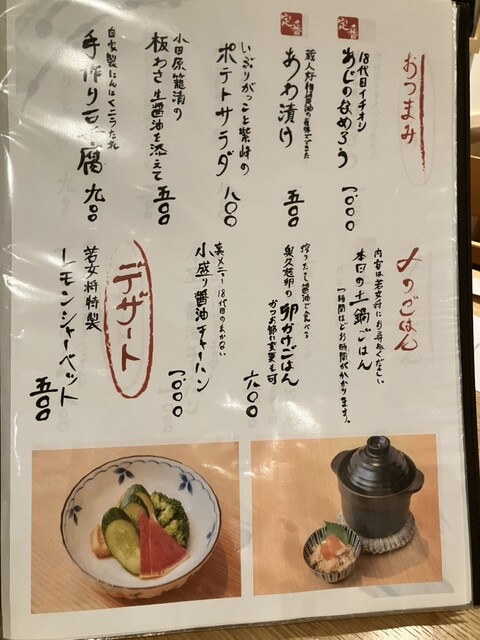 おつまみ
定番
18代目イチオシ
あじのなめろう
1,000
定番
あわ漬け
五〇〇
いぶりがっこと紫峰の
ポテトサラダ
八〇〇
小田原籠清の
板わさ 生醤油を添えて
五〇〇
自家製にんにくごうたれ
手作り豆腐
九〇〇
〆のごはん
内容は若女将にお尋ねください
本日の土鍋ごはん
1時間ほどお時間がかかります。
搾りたて醤油で食べる
奥久慈卵の卵かけごはん
かつお節に変更も可
六〇〇
裏メニュー18代目のまかない
小盛り醤油チャーハン
1,000
デザート
若女将特製
レモンシャーベット
五〇〇